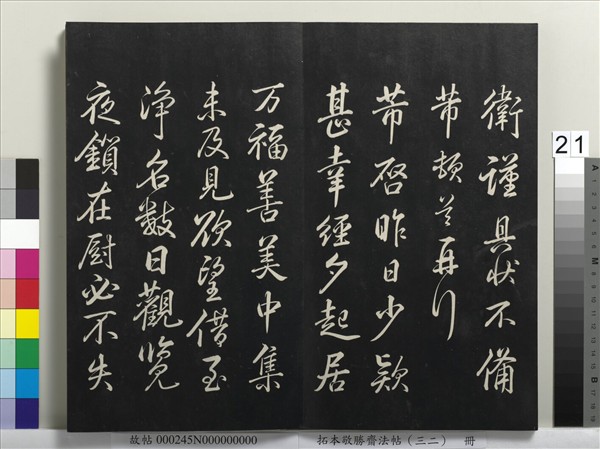 衛謹具狀不備
芾頓首再拜
芾啓昨日少欵
甚幸經夕起居
万福善美中集
未及見欲望借至
淨名數日觀覽
夜鎖在厨必不失
21
故帖 000245N000000000
拓本敬勝齋法帖（三二） 冊